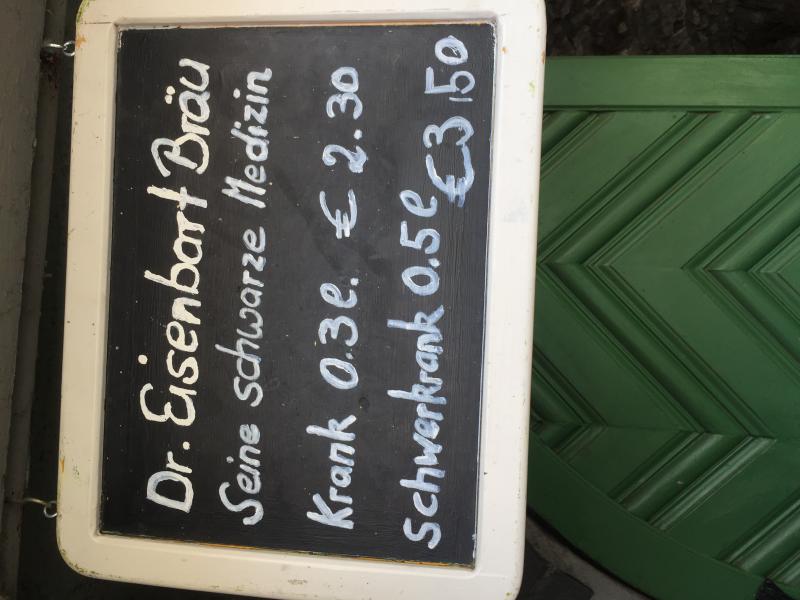 Dr. Eisenbart Bräu
Seine schwarze Medizin
Krank 0.3l. € 2.30
Schwerkrank 0.5l €3,50